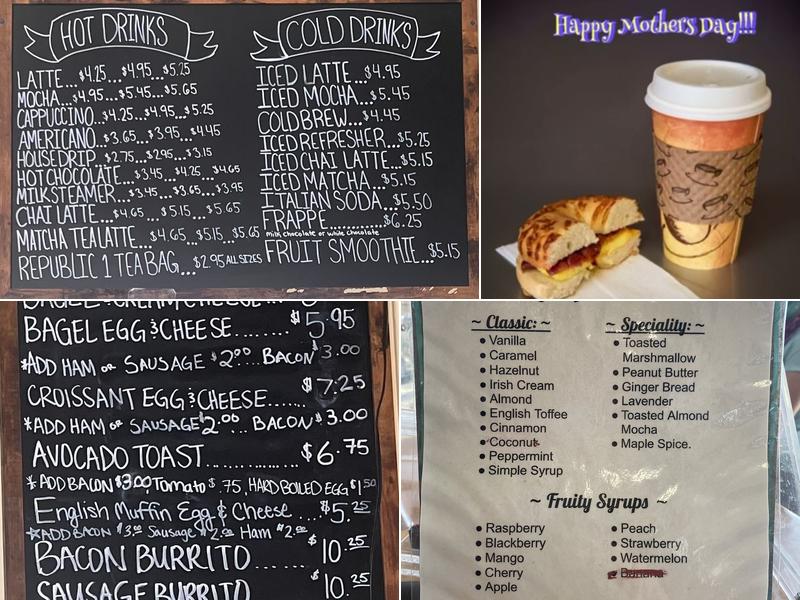 HOT DRINKS
LATTE...$4.25...$4.95...$5.25
MOCHA...$4.95...$5.45...$5.65
CAPPUCCINO...$4.25...$4.95...$5.25
AMERICANO...$3.65...$3.95...$4.45
HOUSE DRIP...$2.75...$2.95...$3.15
HOT CHOCOLATE...$3.45...$4.25...$4.65
MILK STEAMER...$3.45...$3.65...$3.95
CHAI LATTE...$4.65...$5.15...$5.65
MATCHA TEA LATTE...$4.65...$5.15...$5.65
REPUBLIC 1 TEA BAG...$2.95 ALL SIZES
COLD DRINKS
ICED LATTE...$4.95
ICED MOCHA...$5.45
COLD BREW...$4.45
ICED REFRESHER...$5.25
ICED CHAI LATTE...$5.15
ICED MATCHA...$5.15
ITALIAN SODA...$5.50
FRAPPE............$6.25
milk chocolate or white chocolate
FRUIT SMOOTHIE...$5.15
Happy Mothers Day!!!
BAGEL & CREAM CHEESE
BAGEL EGG & CHEESE........$5.95
*ADD HAM or SAUSAGE $2.00... BACON $3.00
CROISSANT EGG & CHEESE...... $7.25
*ADD HAM or SAUSAGE $2.00... BACON $3.00
AVOCADO TOAST............... $6.75
*ADD BACON $3.00, Tomato $.75, HARD BOILED EGG $1.50
English Muffin Egg & Cheese....$5.25
*ADD BACON $3.00 Sausage $2.00 Ham $2.00
BACON BURRITO....... $10.25
SAUSAGE BURRITO $10.25
~ Classic: ~
• Vanilla
• Caramel
• Hazelnut
• Irish Cream
• Almond
• English Toffee
• Cinnamon
• Coconut
• Peppermint
• Simple Syrup
~ Speciality: ~
• Toasted
Marshmallow
• Peanut Butter
• Ginger Bread
• Lavender
• Toasted Almond
Mocha
• Maple Spice.
~ Fruity Syrups ~
• Raspberry
• Blackberry
• Mango
• Cherry
• Apple
• Peach
• Strawberry
• Watermelon
• Banana